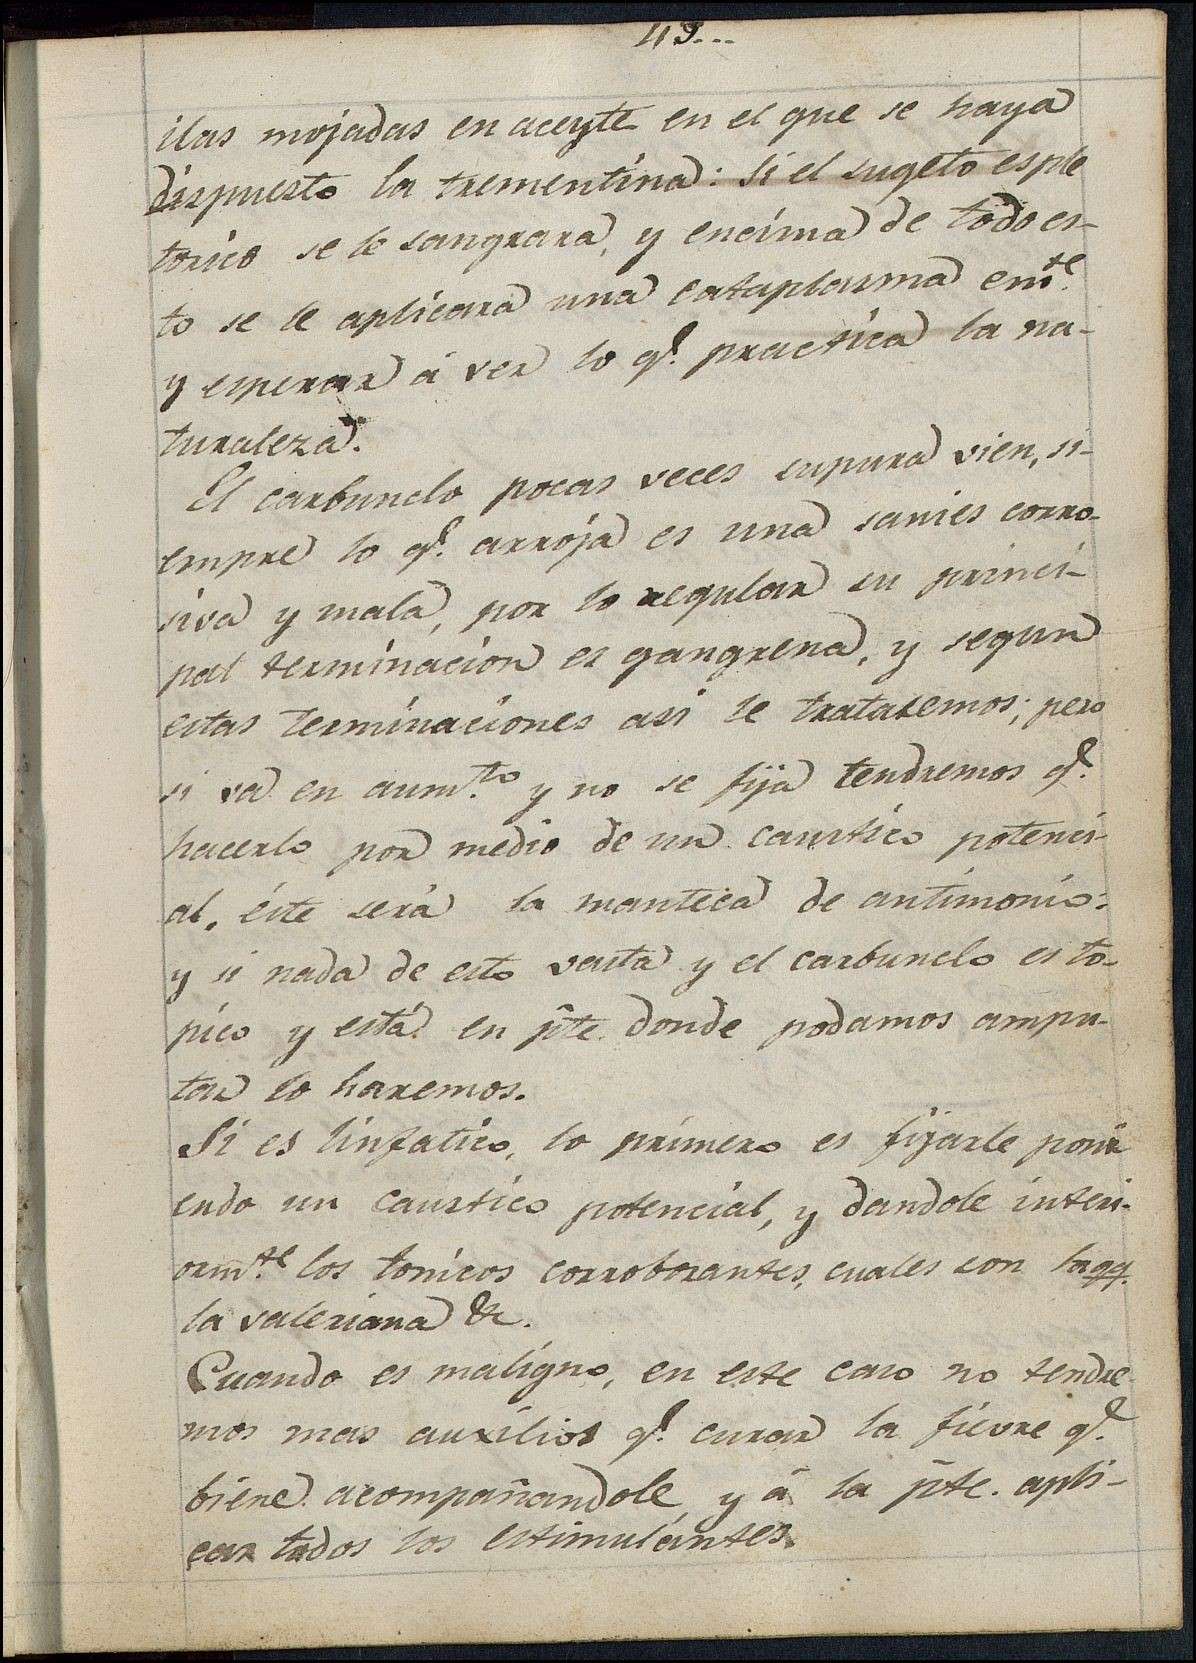 43...
ilas mojadas en aceyte en el que se haya
dispuesto la trementina: si el sugeto es ple
torico se le sangrara, y encima de todo es-
to se le aplicara una cataplasma em.te
y esperar á ver lo q.e practica la na-
turaleza.
El carbunclo pocas veces supura vien, si-
empre lo q.e arroja es una sanies corro-
siva y mala, por lo regular su princi-
pal terminacion es gangrena, y segun
estas terminaciones asi le trataremos; pero
si va en aum.to y no se fija tendremos q.e
hacerlo por medio de un caustico potenci-
al, éste será la manteca de antimonio:
y si nada de esto vasta y el carbunclo es to-
pico y está en p̃te. donde podamos ampu-
tar lo haremos.
Si es linfatico, lo primero es fijarle poni
endo un caustico potencial, y dandole interi-
orm.te los tonicos corroborantes, cuales son la qq.
la valeriana &c.
Cuando es maligno, en este caso no tendre-
mos mas auxilios q.e curar la fievre q.e
biene acompañandole y á la p̃te. apli-
car todos los estimulantes.